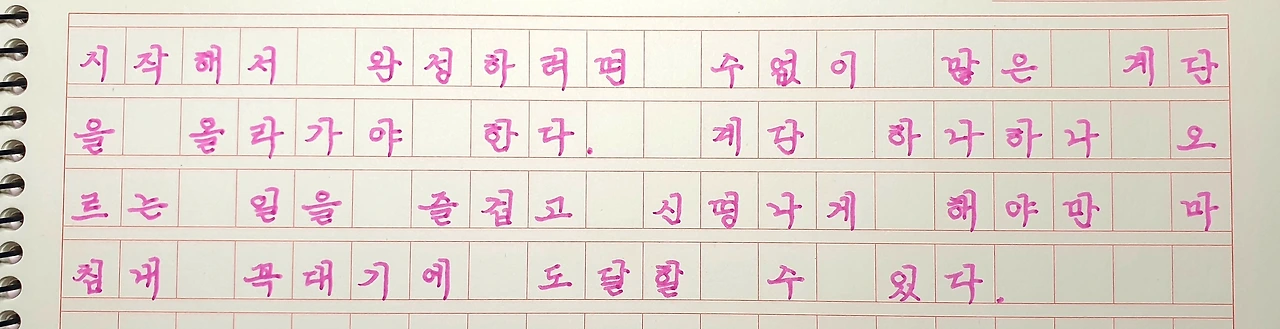 지작해서 완성하려면 수없이 많은 계단
을 올라가야 한다. 계단 하나하나 오
르는 일을 즐겁고 신명나게 해야만 마
침내 꼭대기에 도달할 수 있다.